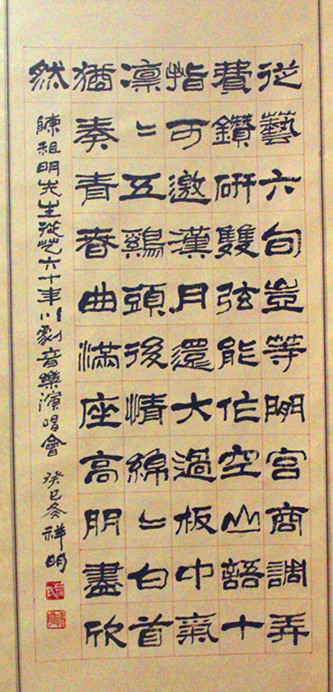 從藝六旬豈等閒宮商調弄
費鑽研雙弦能作空山語十
指可邀漢月還大過板中氣
凜〻五鷄頭後情綿〻白首
猶奏青春曲滿座高朋盡欣
然
陳祖明先生從艺六十年川劇音樂演唱會 癸巳冬祥明